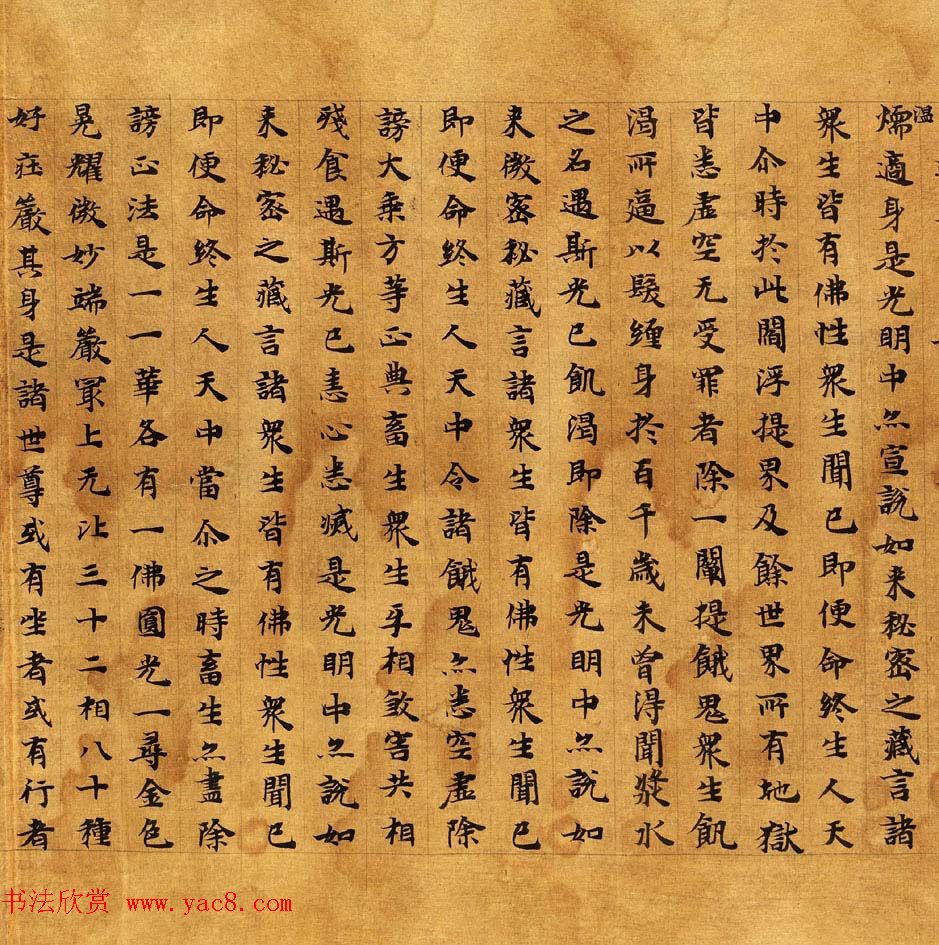 溫
煗適身是光明中亦宣說如来秘密之藏言諸
衆生皆有佛性衆生聞已即便命終生人天
中尒時扵此閻浮提界及餘世界所有地獄
皆悉虛空无受罪者除一闡提餓鬼衆生飢
渴所逼以髮纏身扵百千歲未曾得聞漿水
之名遇斯光已飢渴即除是光明中亦說如
来微密秘藏言諸衆生皆有佛性衆生聞已
即便命終生人天中令諸餓鬼亦悉空虛除
謗大乘方等正典畜生衆生乎相敦害共相
殘食遇斯光已恚心悉滅是光明中亦說如
来秘密之藏言諸衆生皆有佛性衆生聞已
即便命終生人天中當尒之時畜生亦盡除
謗正法是一一華各有一佛圓光一尋金色
晃耀微妙端嚴冣上无比三十二相八十種
好莊嚴其身是諸世尊或有坐者或有行者
书法欣赏 www.yac8.com